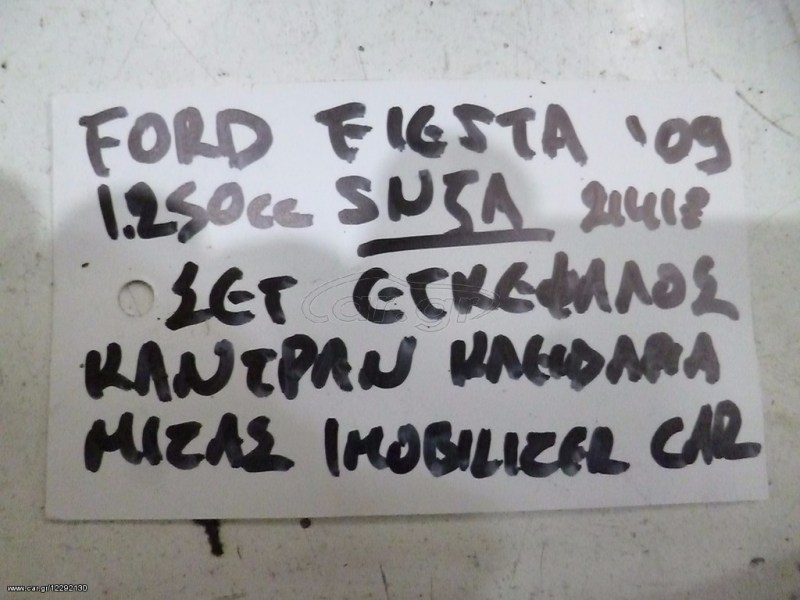 FORD FIESTA '09
1.250cc SNJA 21412
ΣΕΤ ΕΓΚΕΦΑΛΟΣ
ΚΑΝΤΡΑΝ ΚΛΕΙΔΑΡΙΑ
ΜΙΖΑΣ IMOBILIZER CAR
www.car.gr/12292130